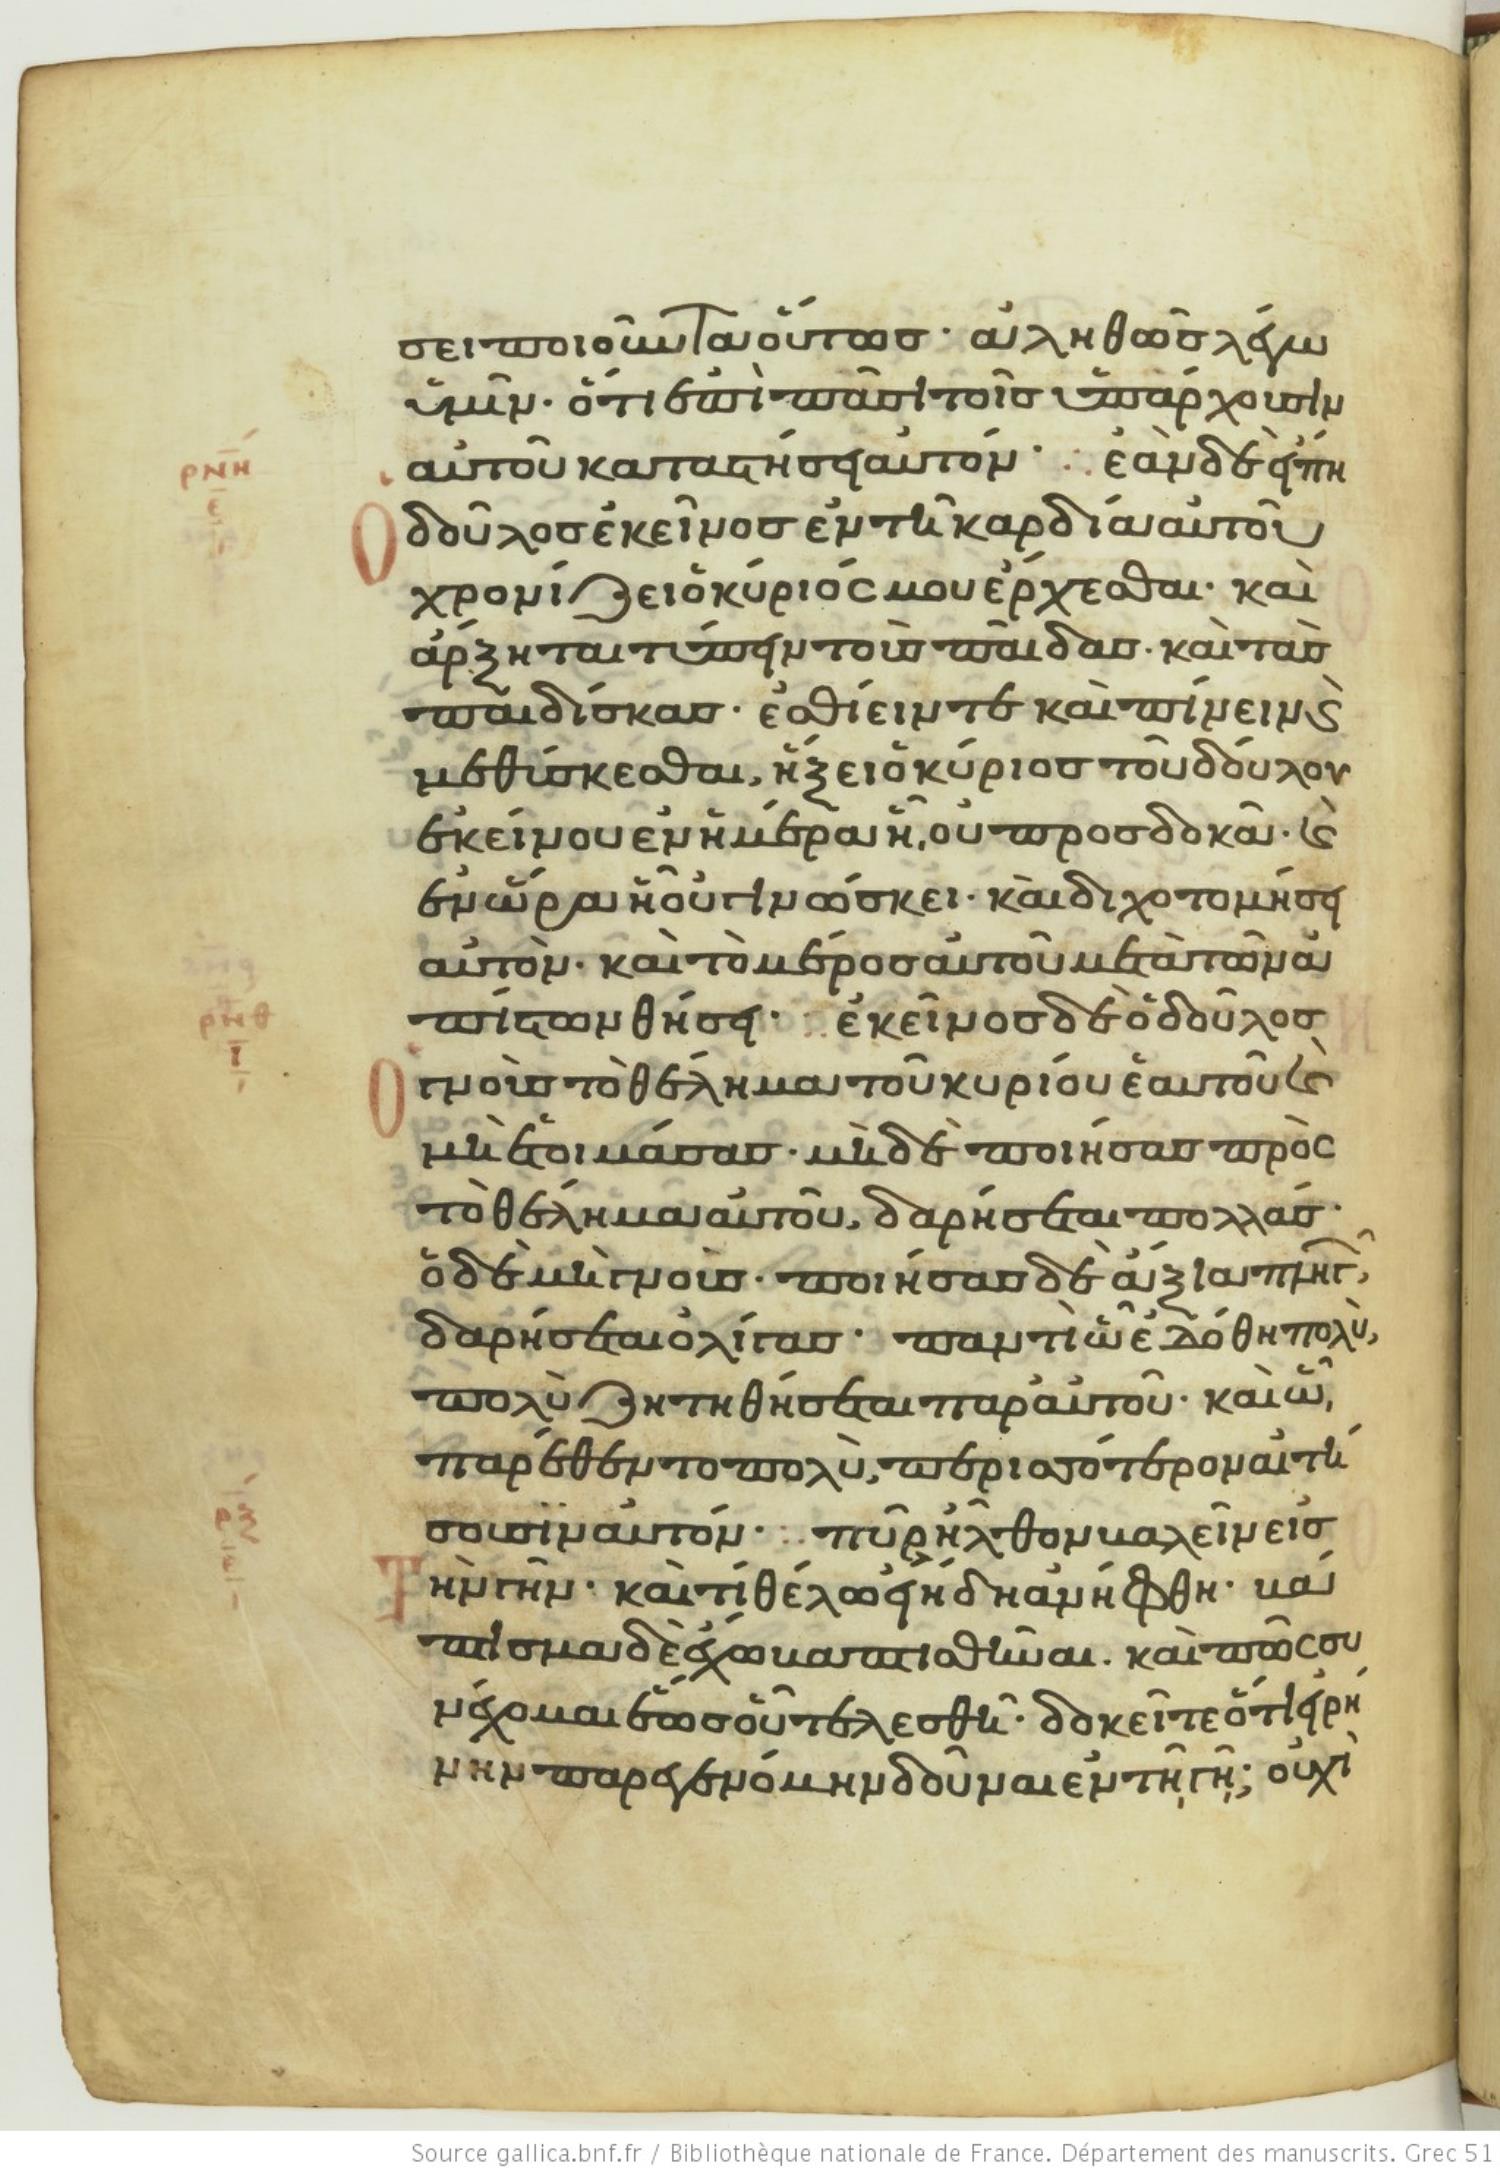 σει ποιοῦντα οὕτως· ἀληθῶς λέγω
ὑμῖν· ὅτι ἐπὶ πᾶσι τοῖς ὑπάρχουσιν
αὐτοῦ καταστήσει αὐτόν· ἐὰν δὲ εἴπη
ρνη
ε
ὁ δοῦλος ἐκεῖνος ἐν τῆ καρδία αὐτοῦ
χρονίζει ὁ κύριός μου ἔρχεσθαι· καὶ
ἄρξηται τύπτειν τοὺς παῖδας· καὶ τὰς
παιδίσκας· ἐσθίειν τε καὶ πίνειν ϗ
μεθύσκεσθαι, ἥξει ὁ κύριος τοῦ δούλου
ἐκείνου ἐν ἡμέρα ἧ, οὐ προσδοκᾶ· ϗ
ἐν ὥρα ἧ οὐ γινώσκει· καὶ διχοτομήσει
αὐτὸν· καὶ τὸ μέρος αὐτοῦ μετὰ τῶν ἀ
πίστων θήσει· ἐκεῖνος δὲ ὁ δοῦλος
ρνθ
ι
ὁ γνοὺς τὸ θέλημα τοῦ κυρίου ἑαυτοῦ ϗ
μὴ ἑτοιμάσας· μὴ δὲ ποιήσας πρὸς
τὸ θέλημα αὐτοῦ, δαρήσεται πολλάς·
ὁ δὲ μὴ γνοὺς· ποιήσας δὲ ἄξια πληγῶν,
δαρήσεται ὀλίγας· παντὶ ὧ ἐδόθη πολὺ,
πολὺ ζητηθήσεται παρ αὐτοῦ· καὶ ὧ,
παρέθεντο πολὺ, περισσότερον αἰτή
σουσιν αὐτόν· πῦρ ἦλθον βαλεῖν εἰς
ρξ
ι
Τὴν γῆν· καὶ τί θέλω εἰ ἤδη ἀνήφθη· βά
πτισμα δὲ ἔχω βαπτισθῆναι. καὶ πῶς συ
νέχομαι ἕως οὗ τελεσθῆ· δοκεῖτε ὅτι εἰρή
νην παρεγενόμην δοῦναι ἐν τῆ γῆ; οὐχὶ
Source gallica.bnf.fr / Bibliothèque nationale de France. Département des manuscrits. Grec 51